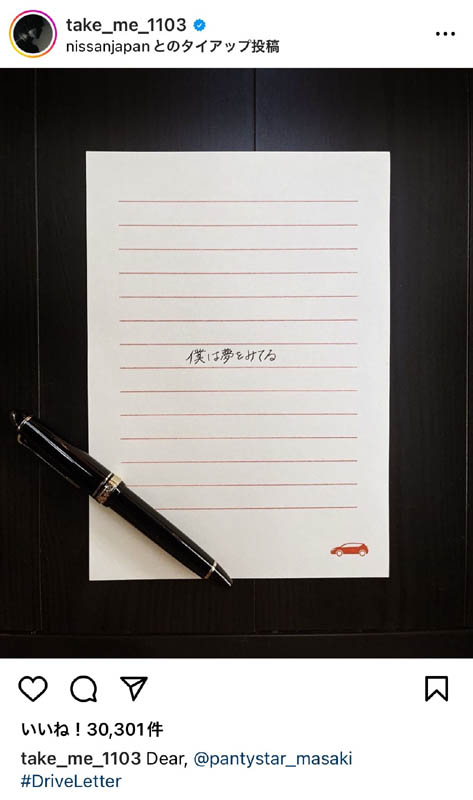 take_me_1103
nissanjapanとのタイアップ投稿
僕は夢をみてる
いいね！30,301件
take_me_1103 Dear, @pantystar_masaki
#DriveLetter